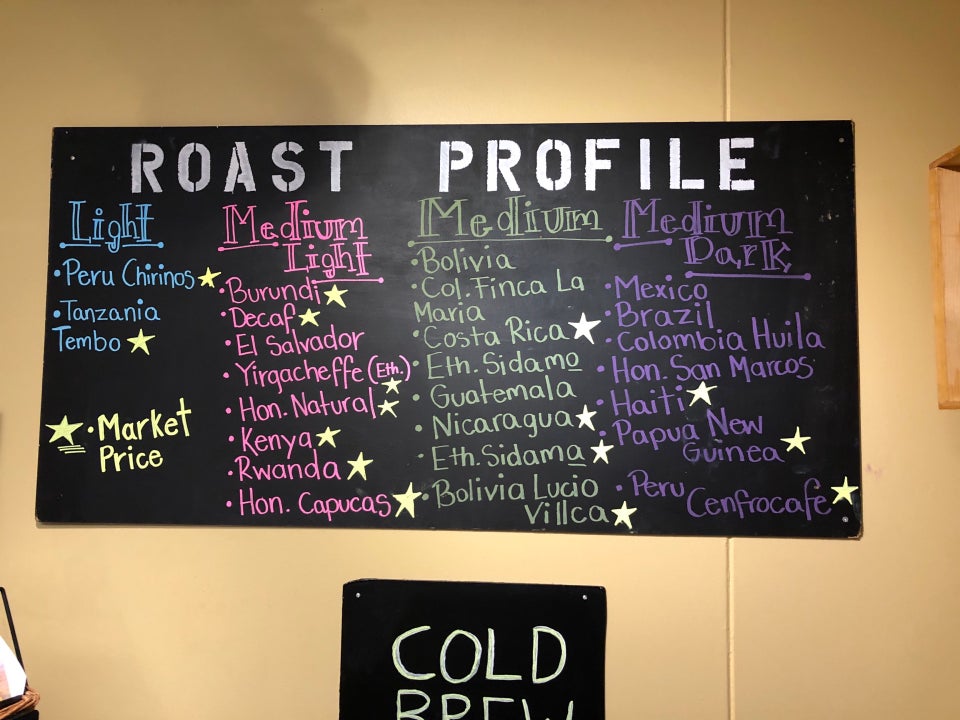 ROAST PROFILE
Light
• Peru Chirinos ★
• Tanzania
Tembo ★
★ • Market
Price
Medium
Light
• Burundi ★
• Decaf ★
• El Salvador
• Yirgacheffe (Eth.) ★
• Hon. Natural ★
• Kenya ★
• Rwanda ★
• Hon. Capucas ★
Medium
• Bolivia
• Col. Finca La
Maria
• Costa Rica ★
• Eth. Sidamo
• Guatemala
• Nicaragua ★
• Eth. Sidama ★
• Bolivia Lucio
Villca ★
Medium
Dark
• Mexico
• Brazil
• Colombia Huila
• Hon. San Marcos
• Haiti ★
• Papua New
Guinea ★
• Peru
Cenfrocafe ★
COLD
BREW